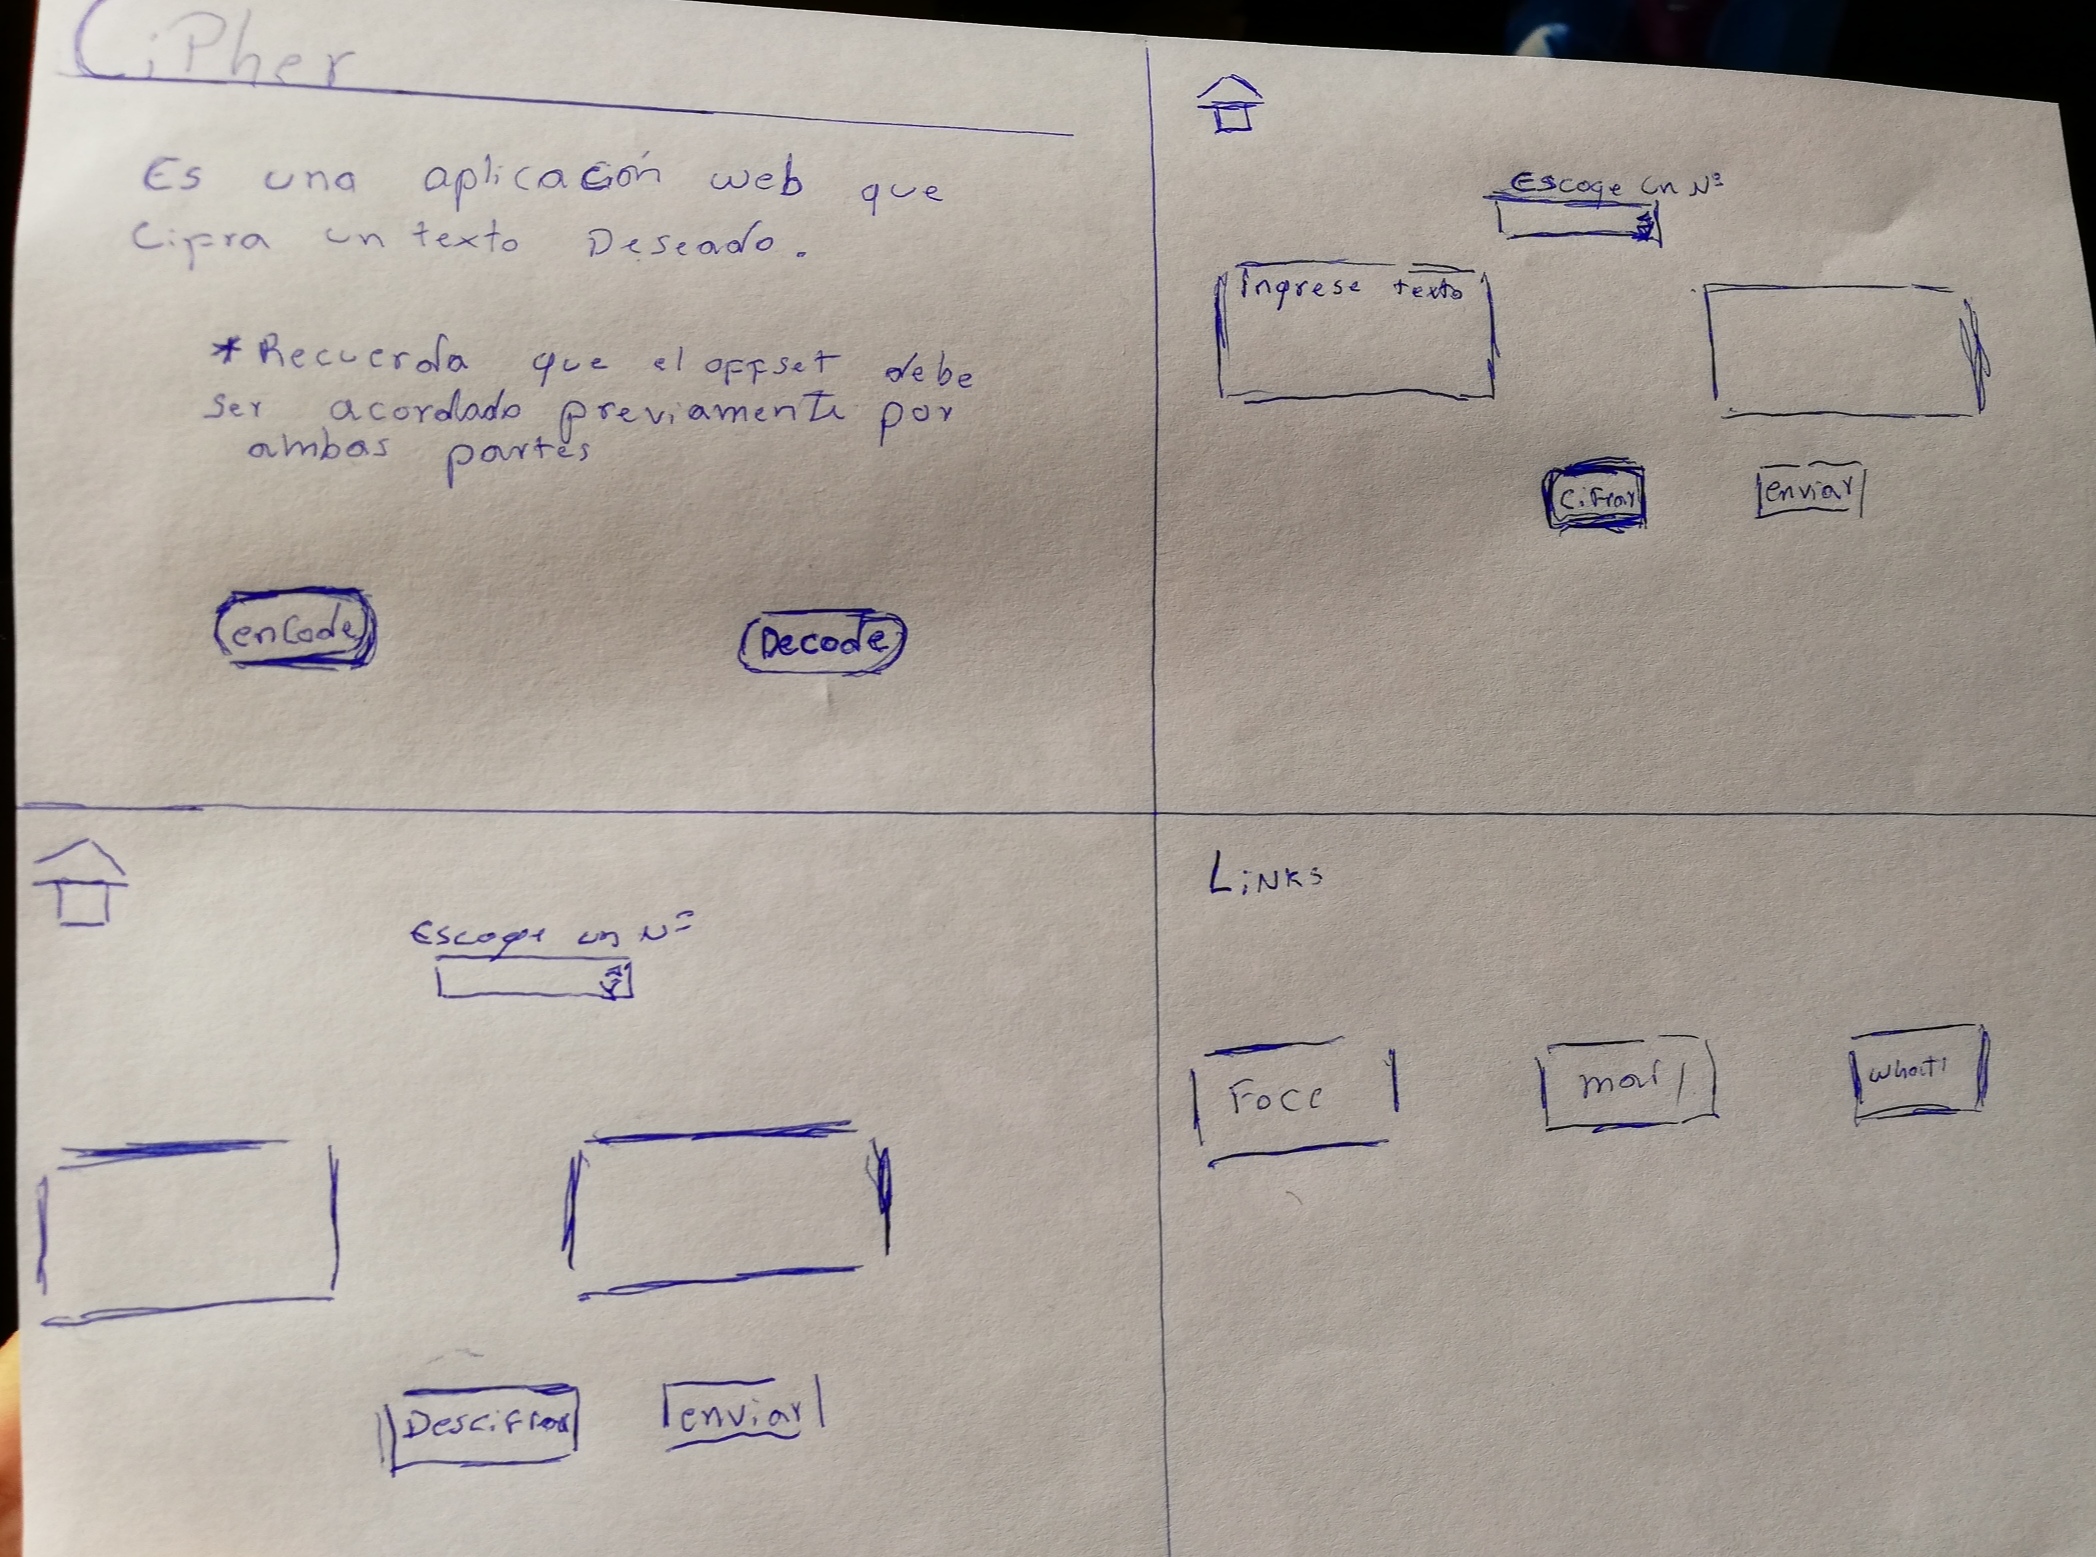 CiPher
Es una aplicación web que
Cifra un texto Deseado.
*Recuerda que el offset debe
ser acordado previamente por
ambas partes
encode
Decode
Escoge un Nº
Ingrese texto
Cifrar
enviar
Escoge un Nº
Descifrar
enviar
LiNKs
Face
mail
whats